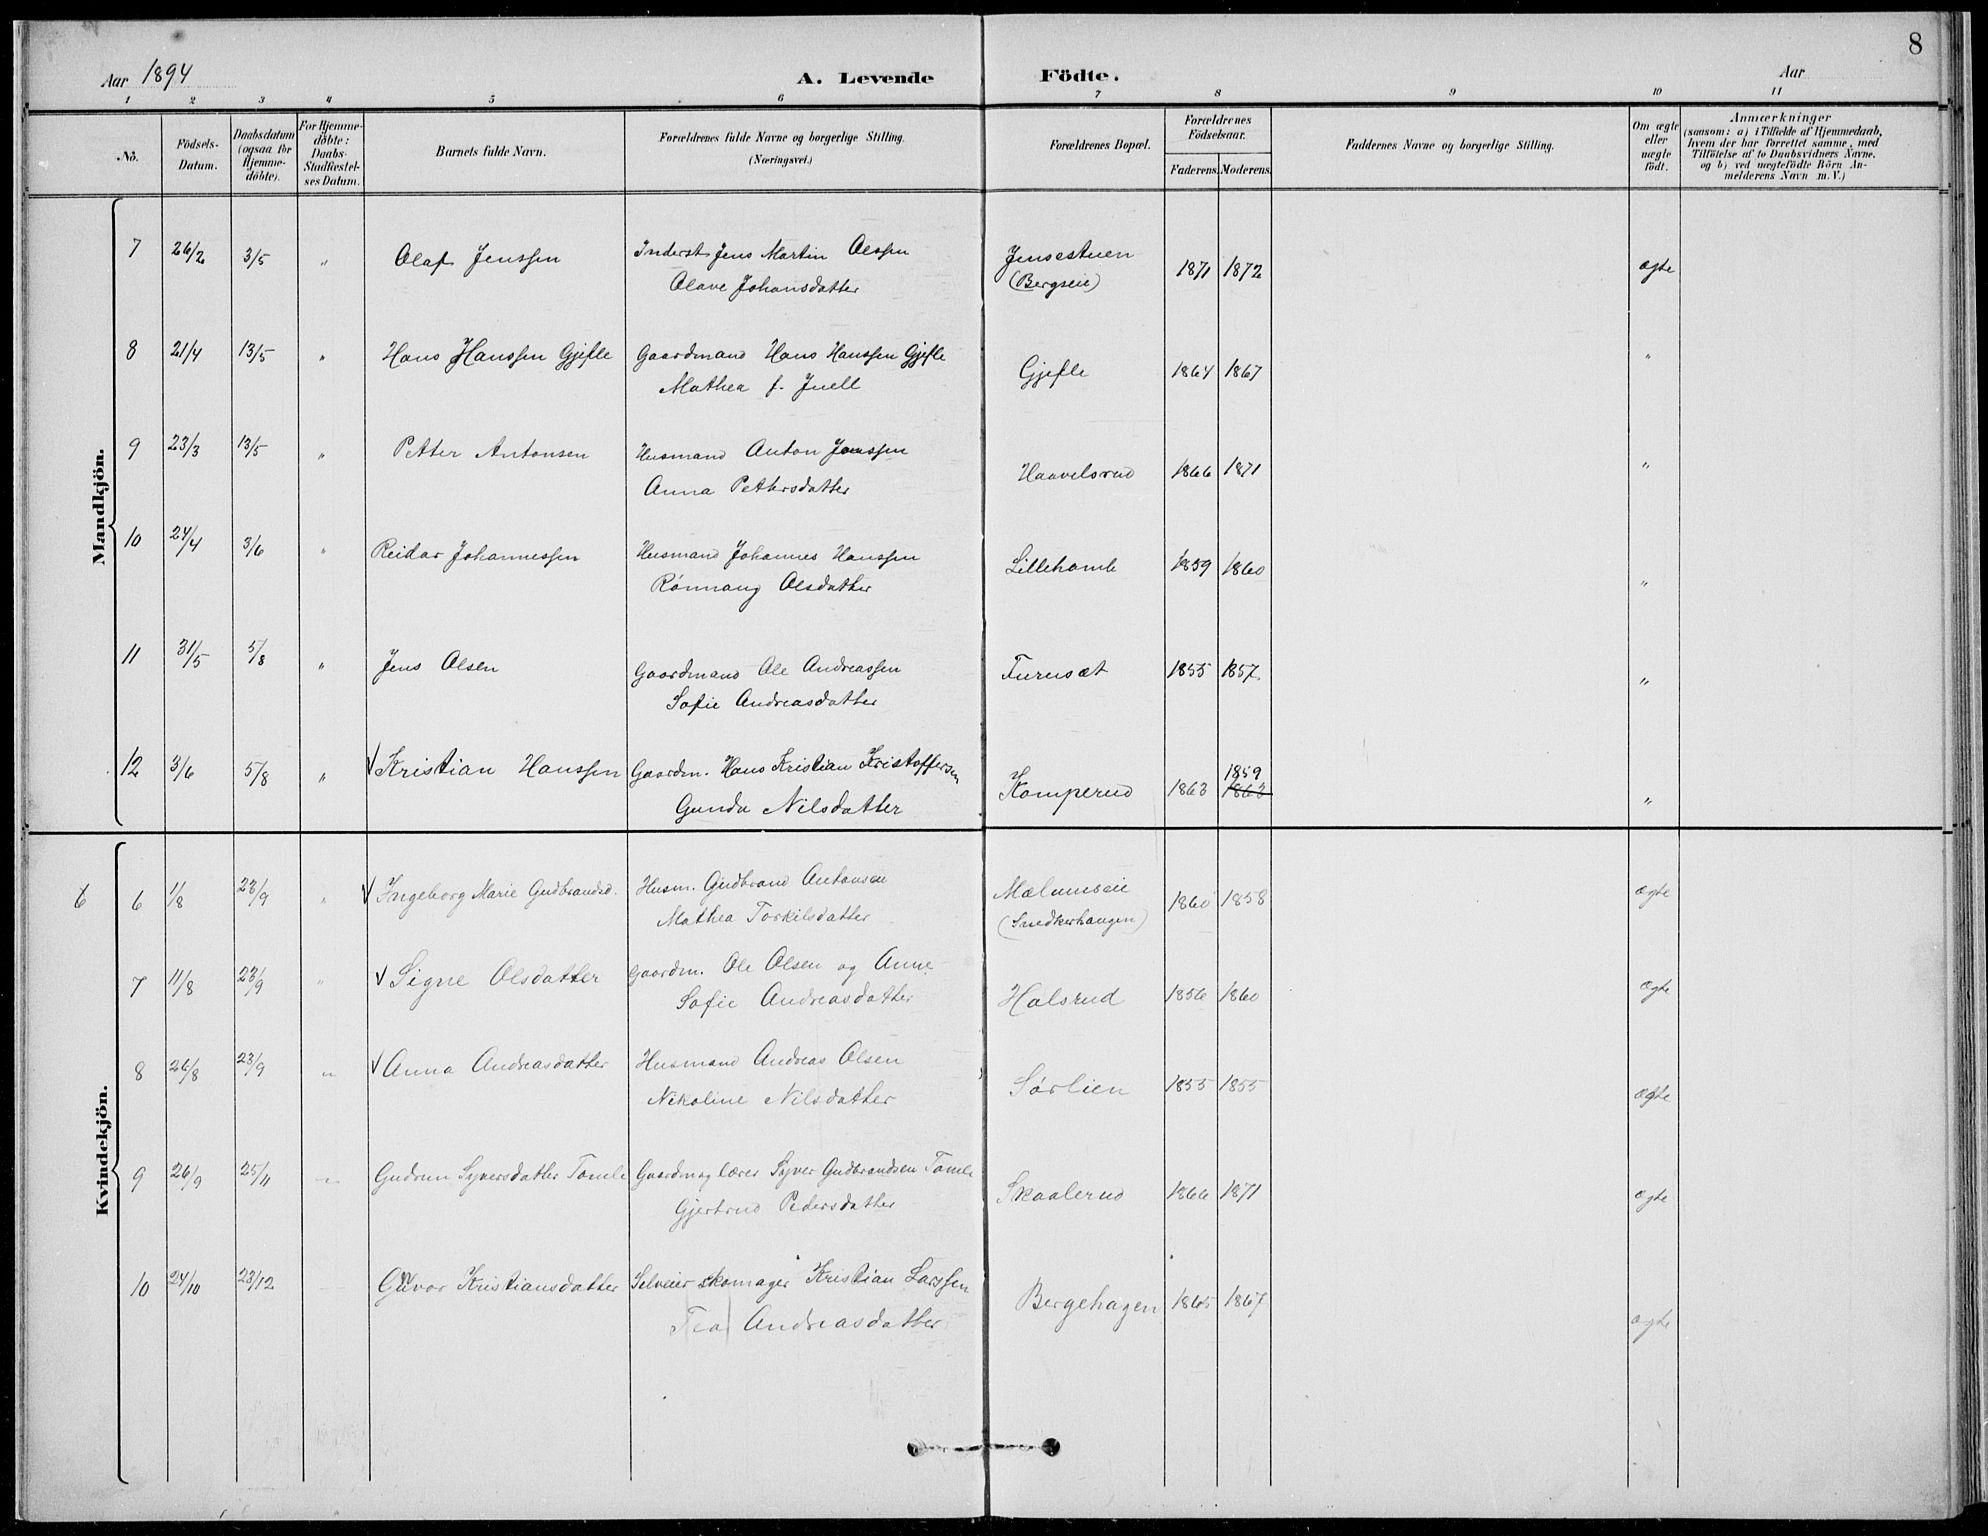 8
Aar 1894 A. Levende Födte. Aar
1 2 3 4 5 6 7 8 9 10 11
No.
Födsels-Datum.
Daabsdatum (ogsaa for Hjemme-döbte).
For Hjemme-döbte: Daabs-Stadfæstel-ses Datum.
Barnets fulde Navn.
Forældrenes fulde Navne og borgerlige Stilling.
(Næringsvei.)
Forældrenes Bopæl.
Forældrenes Födselsaar.
Faderens. Moderens.
Faddernes Navne og borgerlige Stilling.
Om ægte eller uægte födt.
Anmærkninger
(saasom: a) i Tilfælde af Hjemmedaab,
hvem der har forrettet samme, med
Tilföielse af to Daabsvidners Navne,
og b) ved uægtefödte Börn An-
melderens Navn m. V.)
Mandkjön.
7 26/2 3/5 " Olaf Jenssen Inderst Jens Martin Olssen Jensestuen 1871 1872 ægte
Olave Johansdatter (Bergseie)
8 21/4 13/5 " Hans Hanssen Gjefle Gaardmand Hans Hanssen Gjefle Gjefle 1864 1867 "
Mathea f. Juell
9 23/3 13/5 " Petter Antonsen Husmand Anton Jenssen Haavelsrud 1866 1871 "
Anna Pettersdatter
10 24/4 3/6 " Reidar Johannessen Husmand Johannes Hanssen Lillehamle 1859 1860 "
Rönnaug Olsdatter
11 31/5 5/8 " Jens Olsen Gaardmand Ole Andreassen Furusæt 1855 1857 "
Sofie Andreasdatter
12 3/6 5/8 " √ Kristian Hanssen Gaardm. Hans Kristian Kristoffersen Komperud 1863 1859 1863 "
Gunda Nilsdatter
Kvindekjön.
6 6 1/8 23/9 " √ Ingeborg Marie Gudbrandsd. Husm. Gudbrand Antonsen Mælumseie 1860 1858 ægte
Mathea Torkilsdatter
7 11/8 23/9 " √ Signe Olsdatter Gaardm. Ole Olsen og Anne Halsrud 1856 1860 ægte
Sofie Andreasdatter
8 26/8 23/9 " √ Anna Andreasdatter Husmand Andreas Olsen Sørlien 1855 1855 ægte
Nikoline Nilsdatter
9 26/9 25/11 " Gudrun Syversdatter Tomle Gaardm og lærer Syver Gudbrandsen Tomle Skaalerud 1866 1871 ægte
Gjertrud Pedersdatter
10 24/10 23/12 Guvor Kristiansdatter Selveier skomager Kristian Larssen Bergehagen 1865 1867 ægte
Tea Andreasdatter